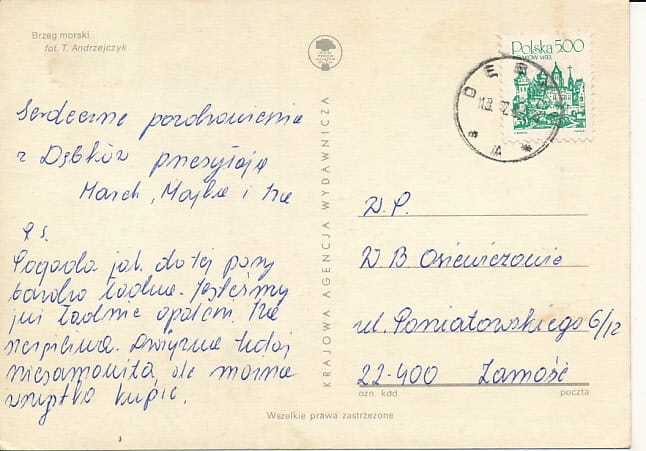 Brzeg morski
fot. T. Andrzejczyk
Serdeczne pozdrowienia
z Dębków przesyłają
Marek, Majka i
P.S.
Pogoda jak do tej pory
bardzo ładna. Jesteśmy
już ładnie opaleni.
Drożyzna tutaj
niesamowita ale można
wszystko kupić.
KRAJOWA AGENCJA WYDAWNICZA
Polska 500
W.P.
W B Osiewiczowie
ul. Poniatowskiego 6/12
22-400 Zamość
ozn. kod poczta
Wszelkie prawa zastrzeżone